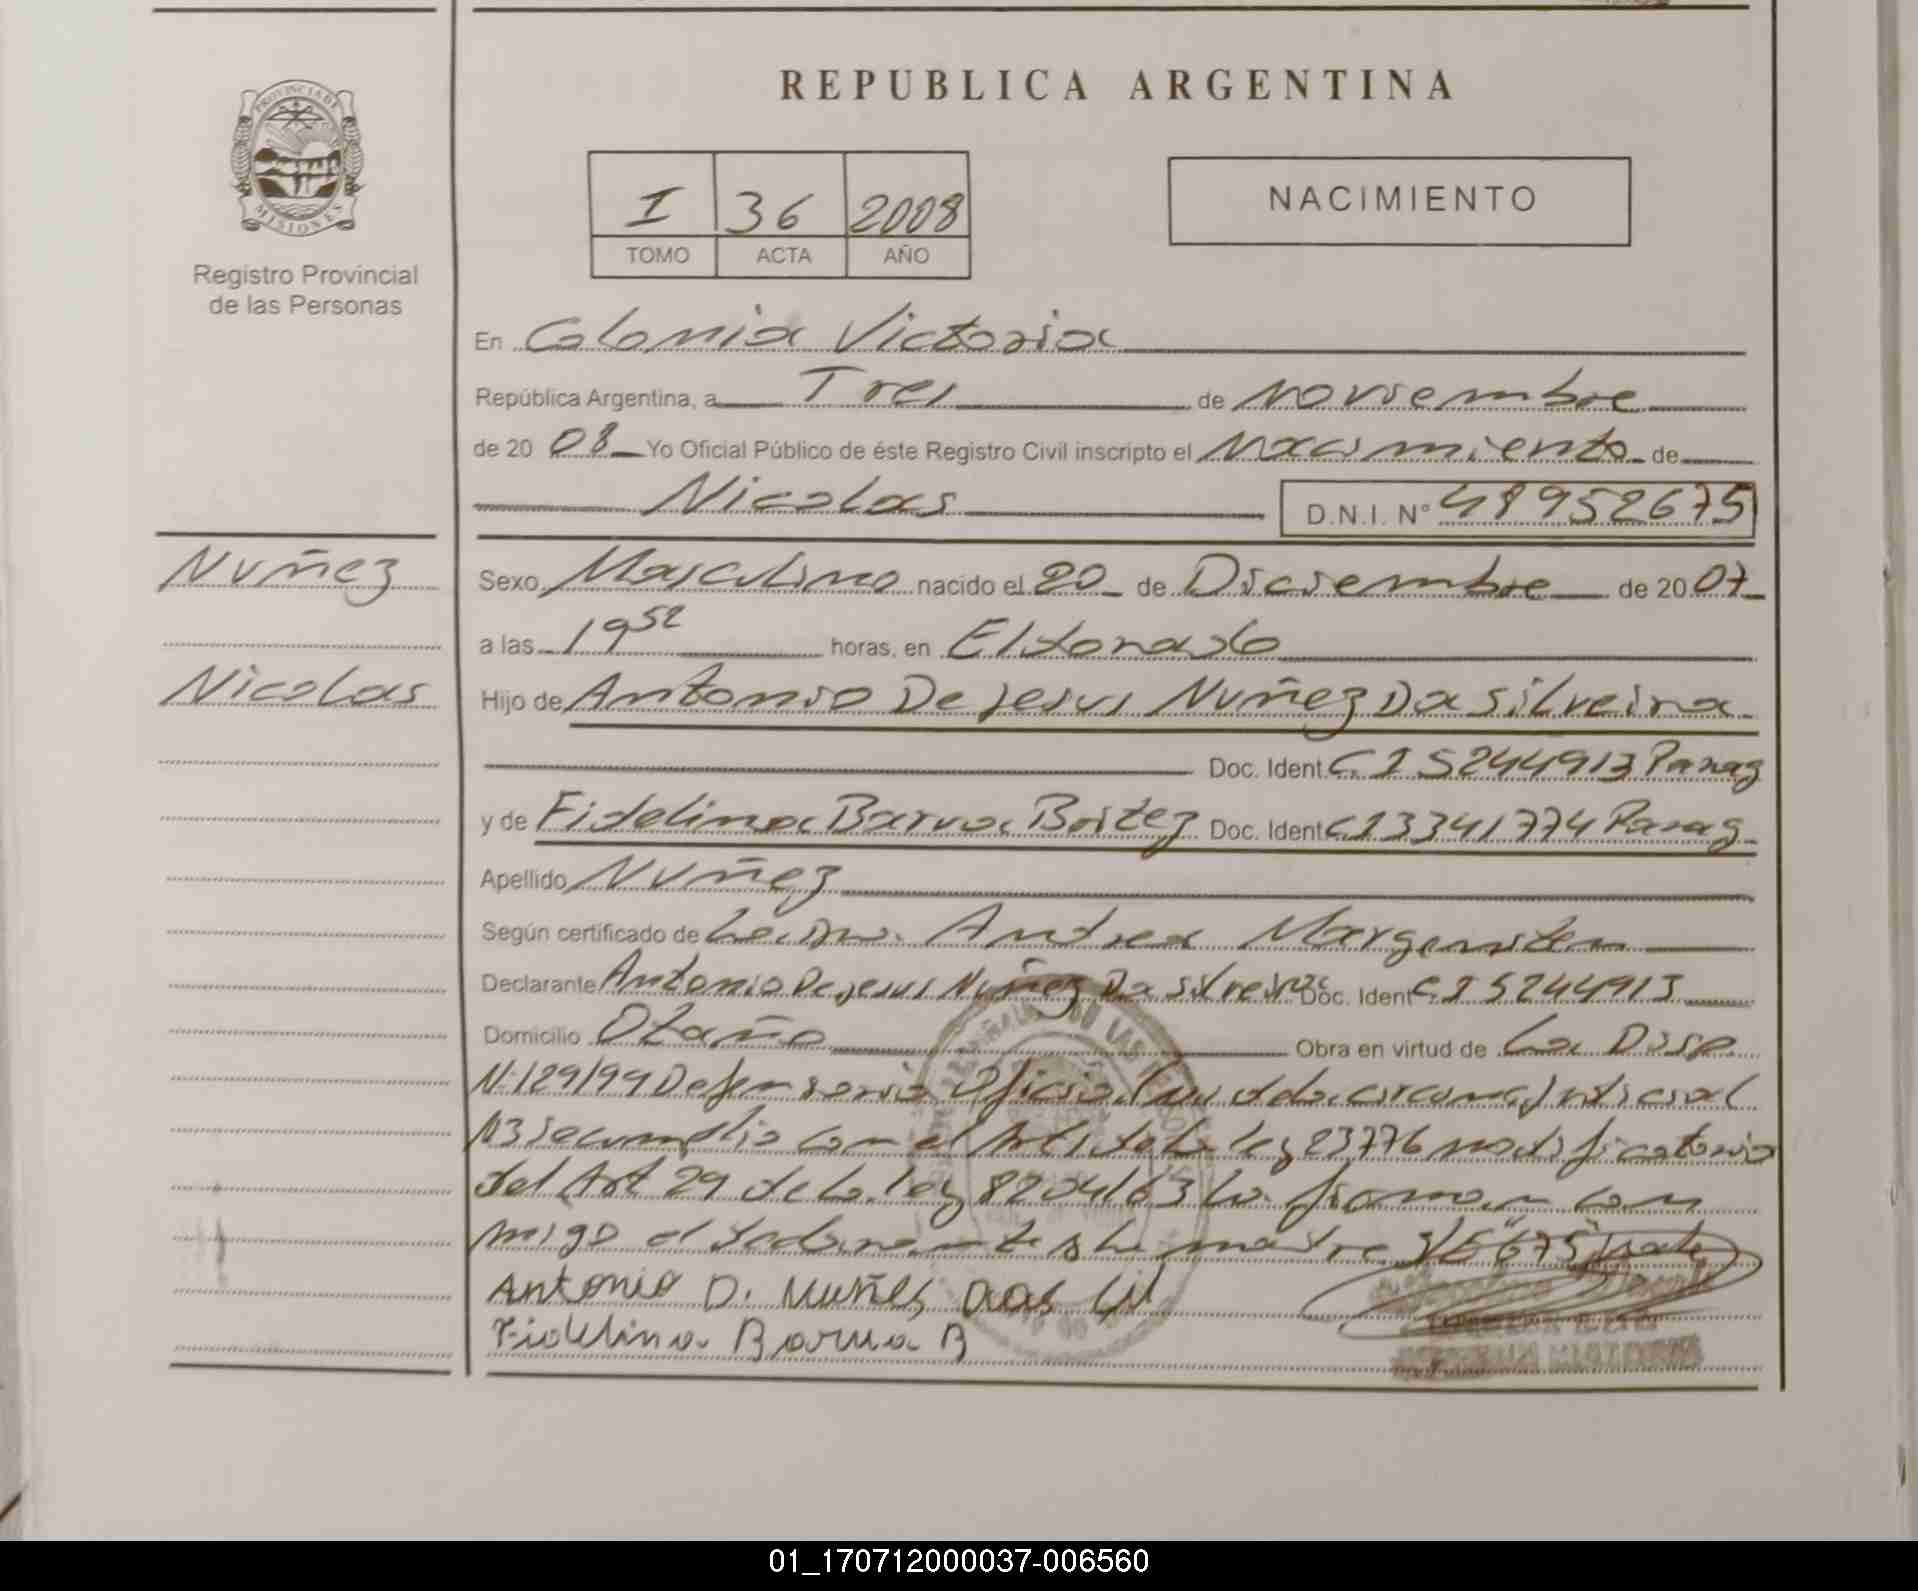 REPUBLICA ARGENTINA
PROVINCIA DE
MISIONES
Registro Provincial
de las Personas
I 36 2008
TOMO ACTA AÑO
NACIMIENTO
En Colonia Victoria
República Argentina, a Tres de Noviembre
de 20 08 Yo Oficial Público de éste Registro Civil inscripto el Nacimiento de
Nicolas D.N.I. N° 48952675
Nuñez
Nicolas
Sexo Masculino nacido el 20 de Diciembre de 20 07
a las 19 52 horas, en Eldorado
Hijo de Antonio De Jesus Nuñez Da Silveira
Doc. Ident. C.I 5244913 Parag
y de Fidelina Barua Bortez Doc. Ident C I 3341774 Parag
Apellido Nuñez
Según certificado de Andrea
Declarante Antonio De Jesus Nuñez Da Silveira Doc. Ident C.I 5244913
Domicilio Otaño Obra en virtud de La Disp
N 129/99 Defensoria Oficial Judicial
N3 se cumplio con el Art 1 de la ley 23776 modificatorio
del Art 29 de la ley 8204/63 la firman con
migo el declarante y la madre S/E "675" Vale
Antonio D. Nuñes Das Sil
Fidelina Barua B
01_170712000037-006560